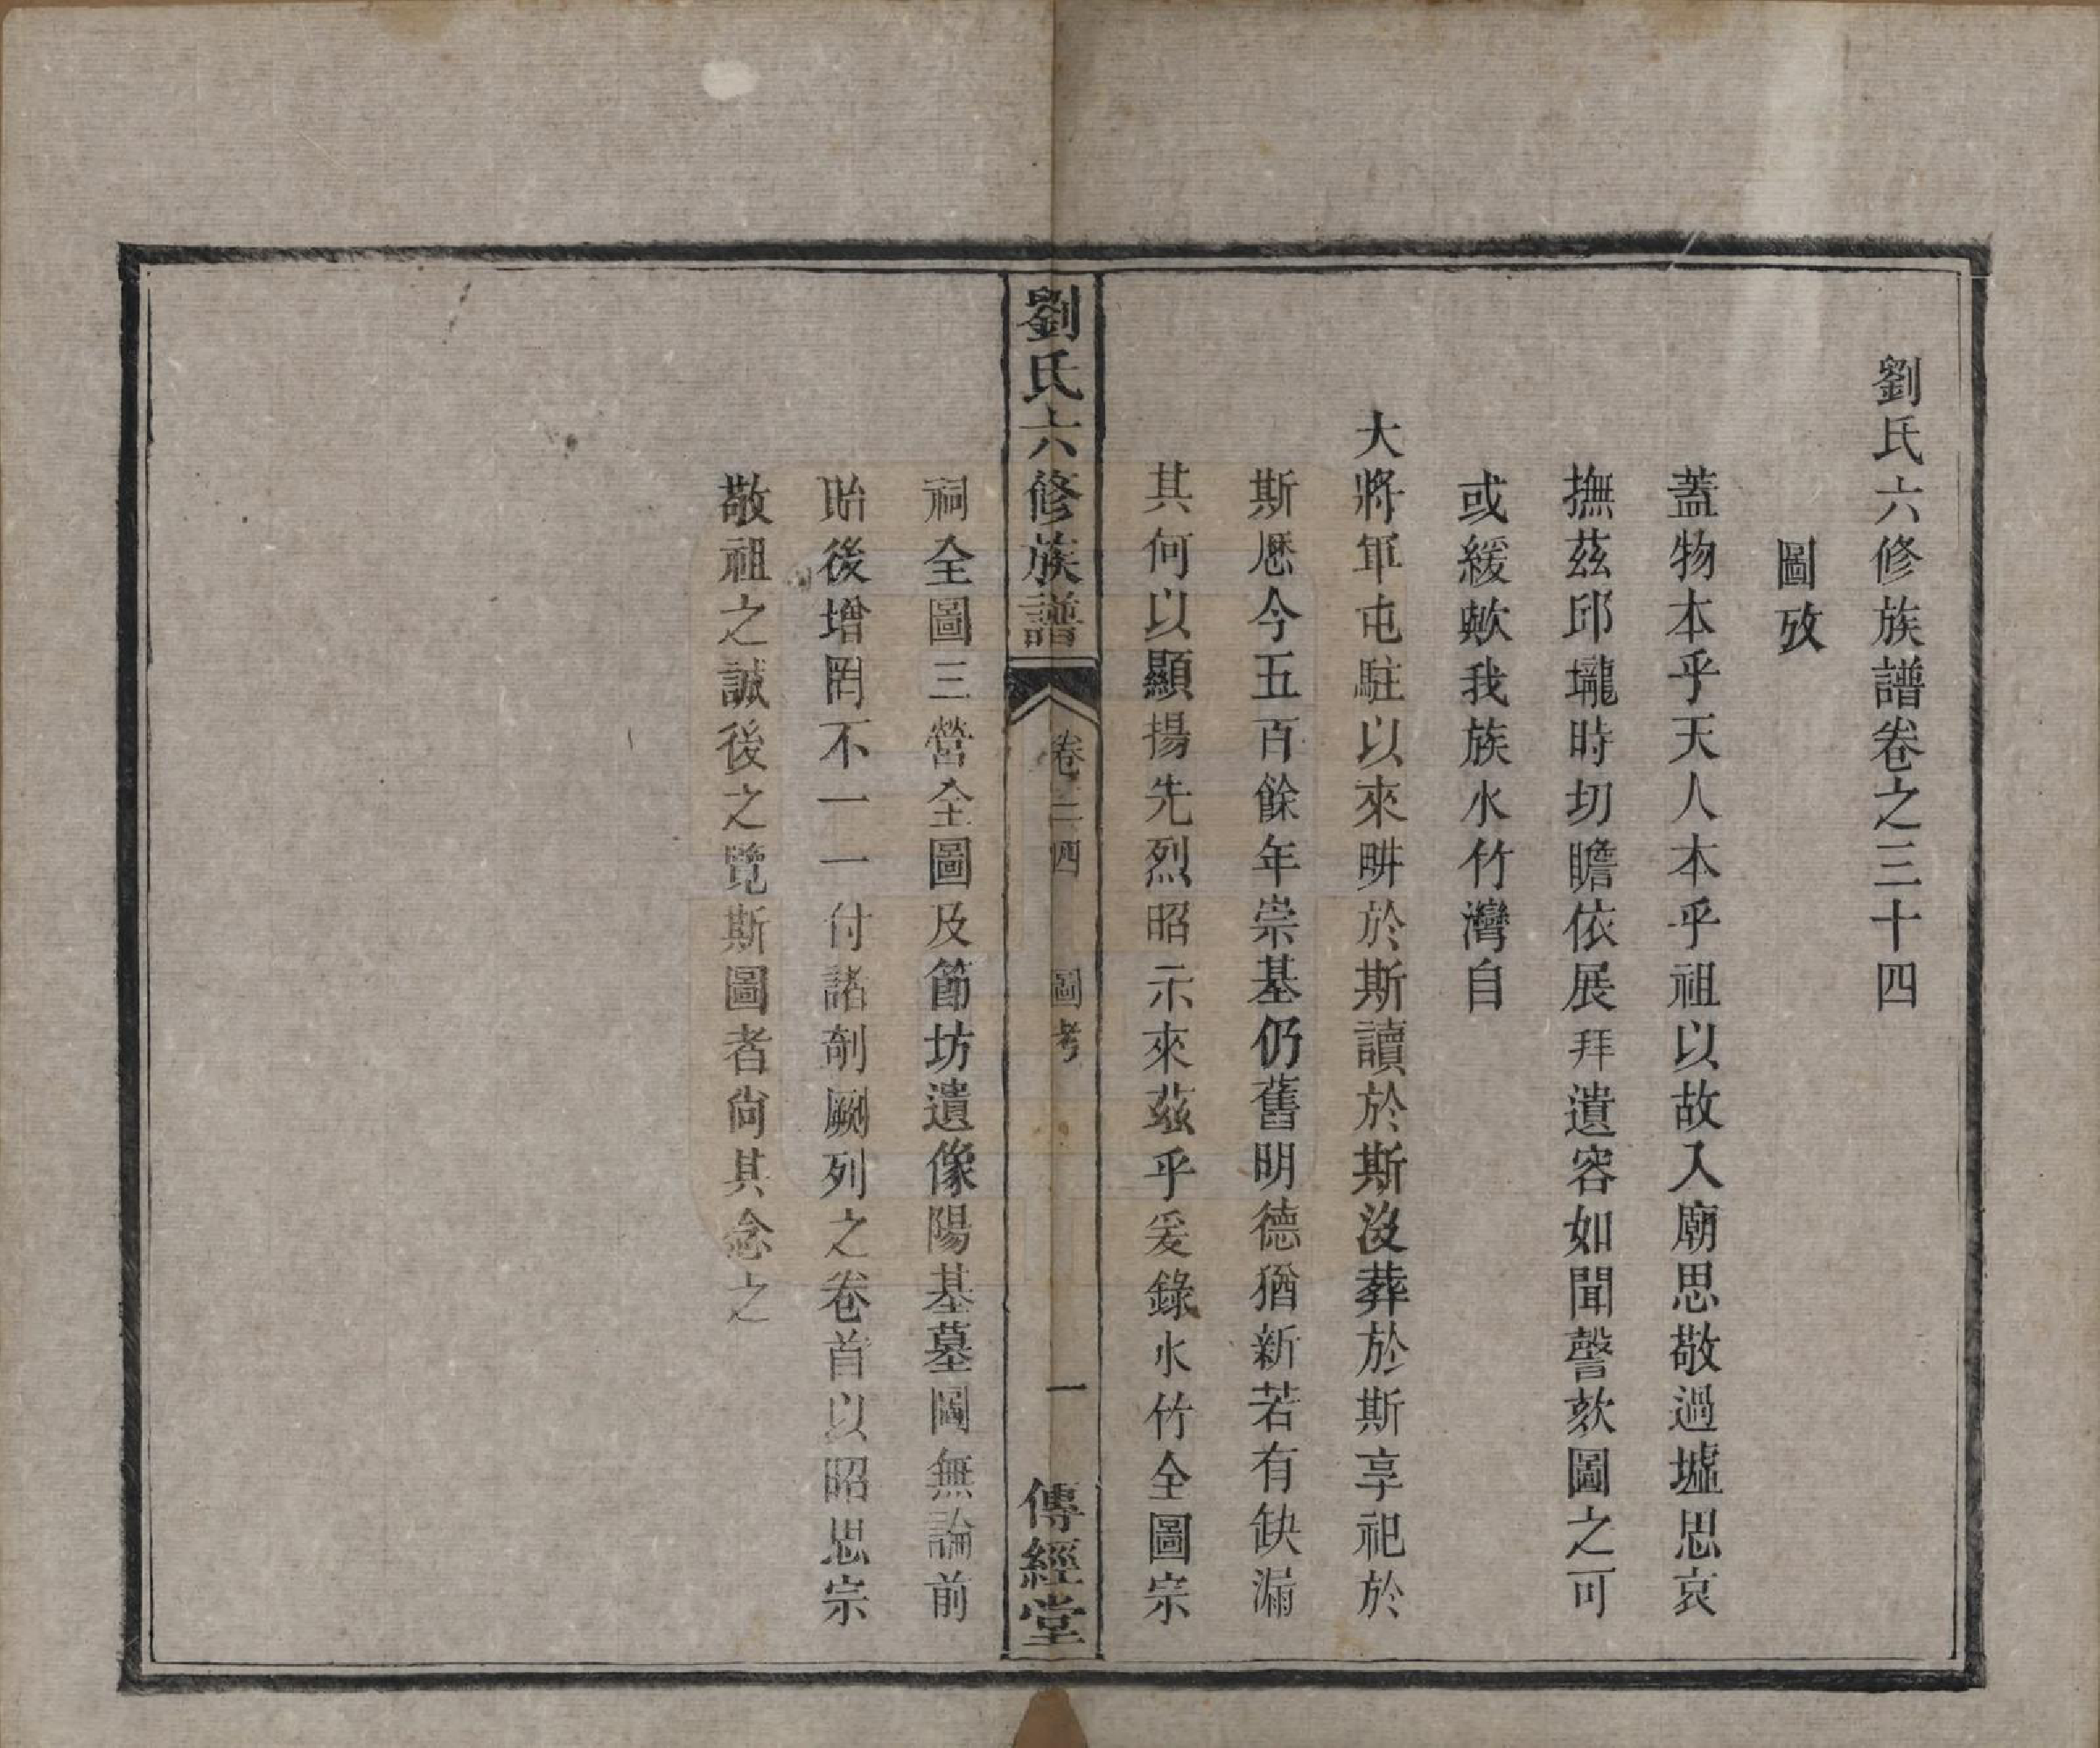 劉氏六修族譜卷之三十四
圖攷
蓋物本乎天人本乎祖以故入廟思敬過墟思哀
撫茲邱壠時切瞻依展拜遺容如聞謦欬圖之可
或緩歟我族水竹灣自
大將軍屯駐以來畊於斯讀於斯沒葬於斯享祀於
斯歷今五百餘年崇基仍舊明德猶新若有缺漏
其何以顯揚先烈昭示來茲乎爰錄水竹全圖宗
劉氏六修族譜
卷三四
圖考
一
傳經堂
祠全圖三營全圖及節坊遺像陽基墓圖無論前
貽後增罔不一一付諸剞劂列之卷首以昭思宗
敬祖之誠後之覽斯圖者尙其念之